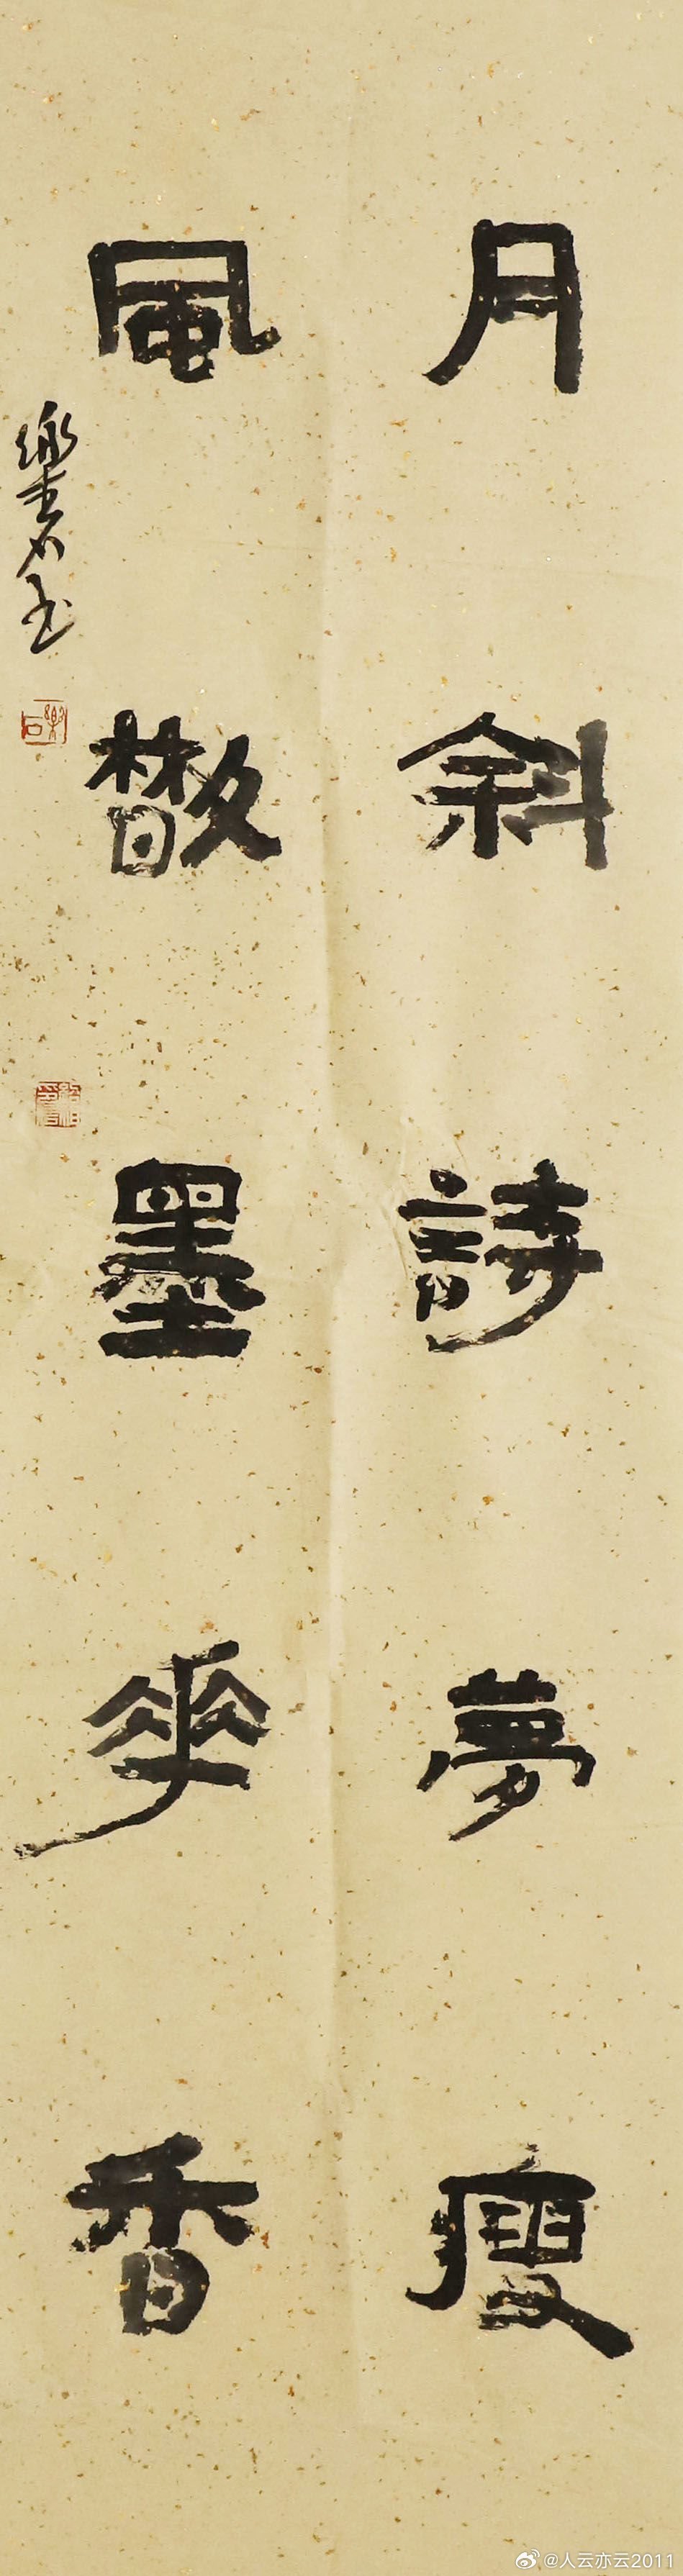 月斜詩夢瘦
風散墨華香
樂石
@人云亦云2011